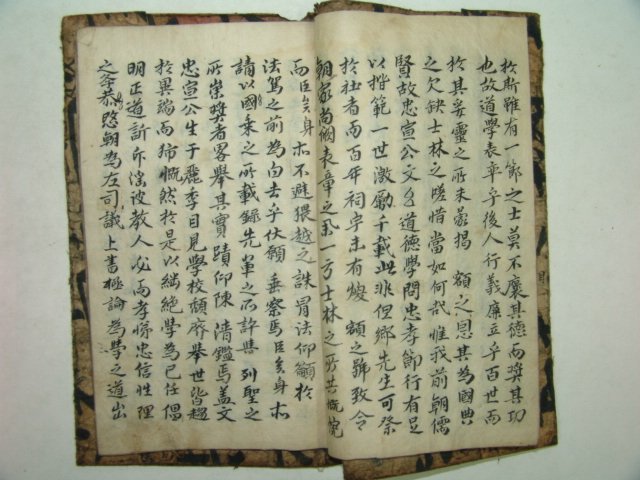 於斯雖有一節之士莫不褒其德而奬其功
也故道學表乎後人行義廉立乎百世而
於其妥靈之所未蒙揭 額之恩其為國典
之欠缺士林之嗟惜當如何哉惟我前朝儒
賢故忠宣公文 道德學問忠孝節行有足
以揩範一世激勵千載此非但鄉先生可祭
於社者而百年祠宇未有 額之號致令
朝家尚闕表章之 一方士林之所共慨
而臣矣身亦不避猥越之誅冒法仰籲於
法駕之前為白去乎伏願 垂察焉臣矣身亦
請以國乘之所載錄先軰之所許與 列聖之
所崇奬者畧舉其實蹟仰陳 清鑑焉盖文
忠宣公生于麗季目見學校頹廢舉世皆趨
於異端而 慨然於是以繼絶學為己任倡
明正道訴斥淫被教人必而孝悌忠信性理
之 恭愍朝為左司議上書極論為學之道出